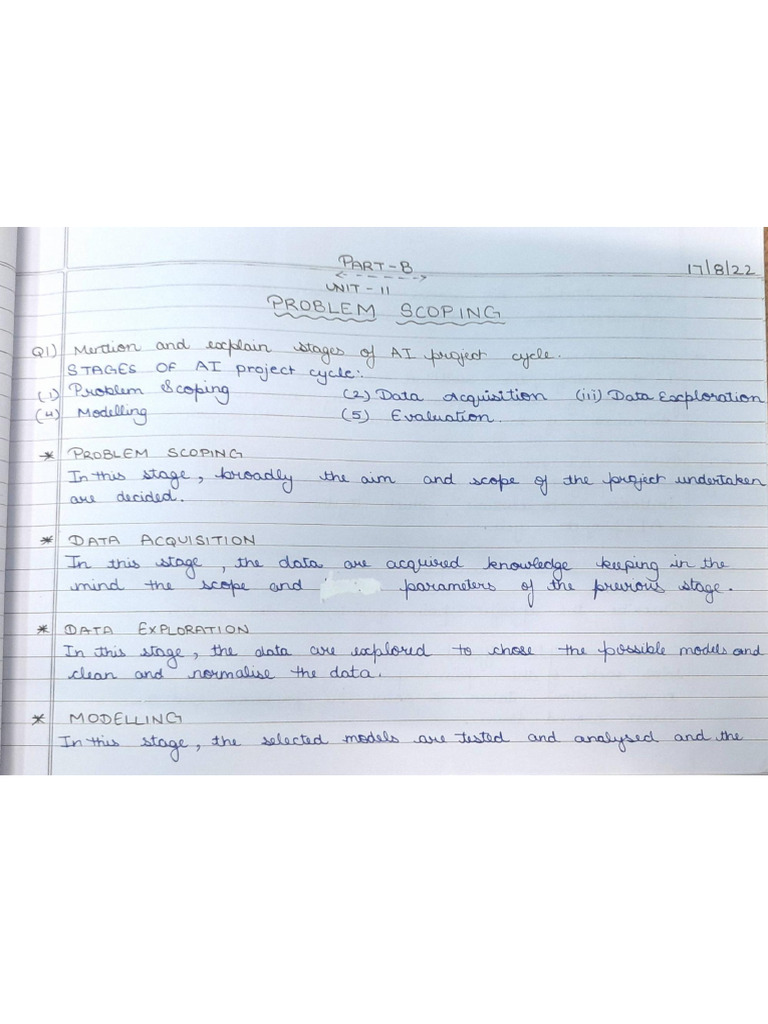 PART-B
17/8/22
UNIT-11
PROBLEM SCOPING
Q1) Mention and explain stages of AI project cycle.
STAGES OF AI project cycle:
(1) Problem Scoping (2) Data Acquisition (iii) Data Exploration
(4) Modelling (5) Evaluation.
* PROBLEM SCOPING
In this stage, broadly the aim and scope of the project undertaken
are decided.
* DATA ACQUISITION
In this stage, the data are acquired knowledge keeping in the
mind the scope and parameters of the previous stage.
* DATA EXPLORATION
In this stage, the data are explored to chose the possible models and
clean and normalise the data.
* MODELLING
In this stage, the selected models are tested and analysed and the